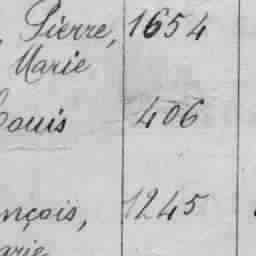 Pierre, 1654
Marie
Louis 406
nçois, 1245
arie